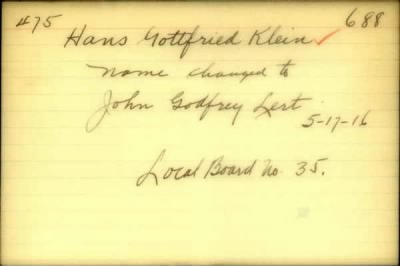 475
688
Hans Gottfried Klein ✓
name changed to
John Godfrey Lert
5-17-16
Local Board No. 35.